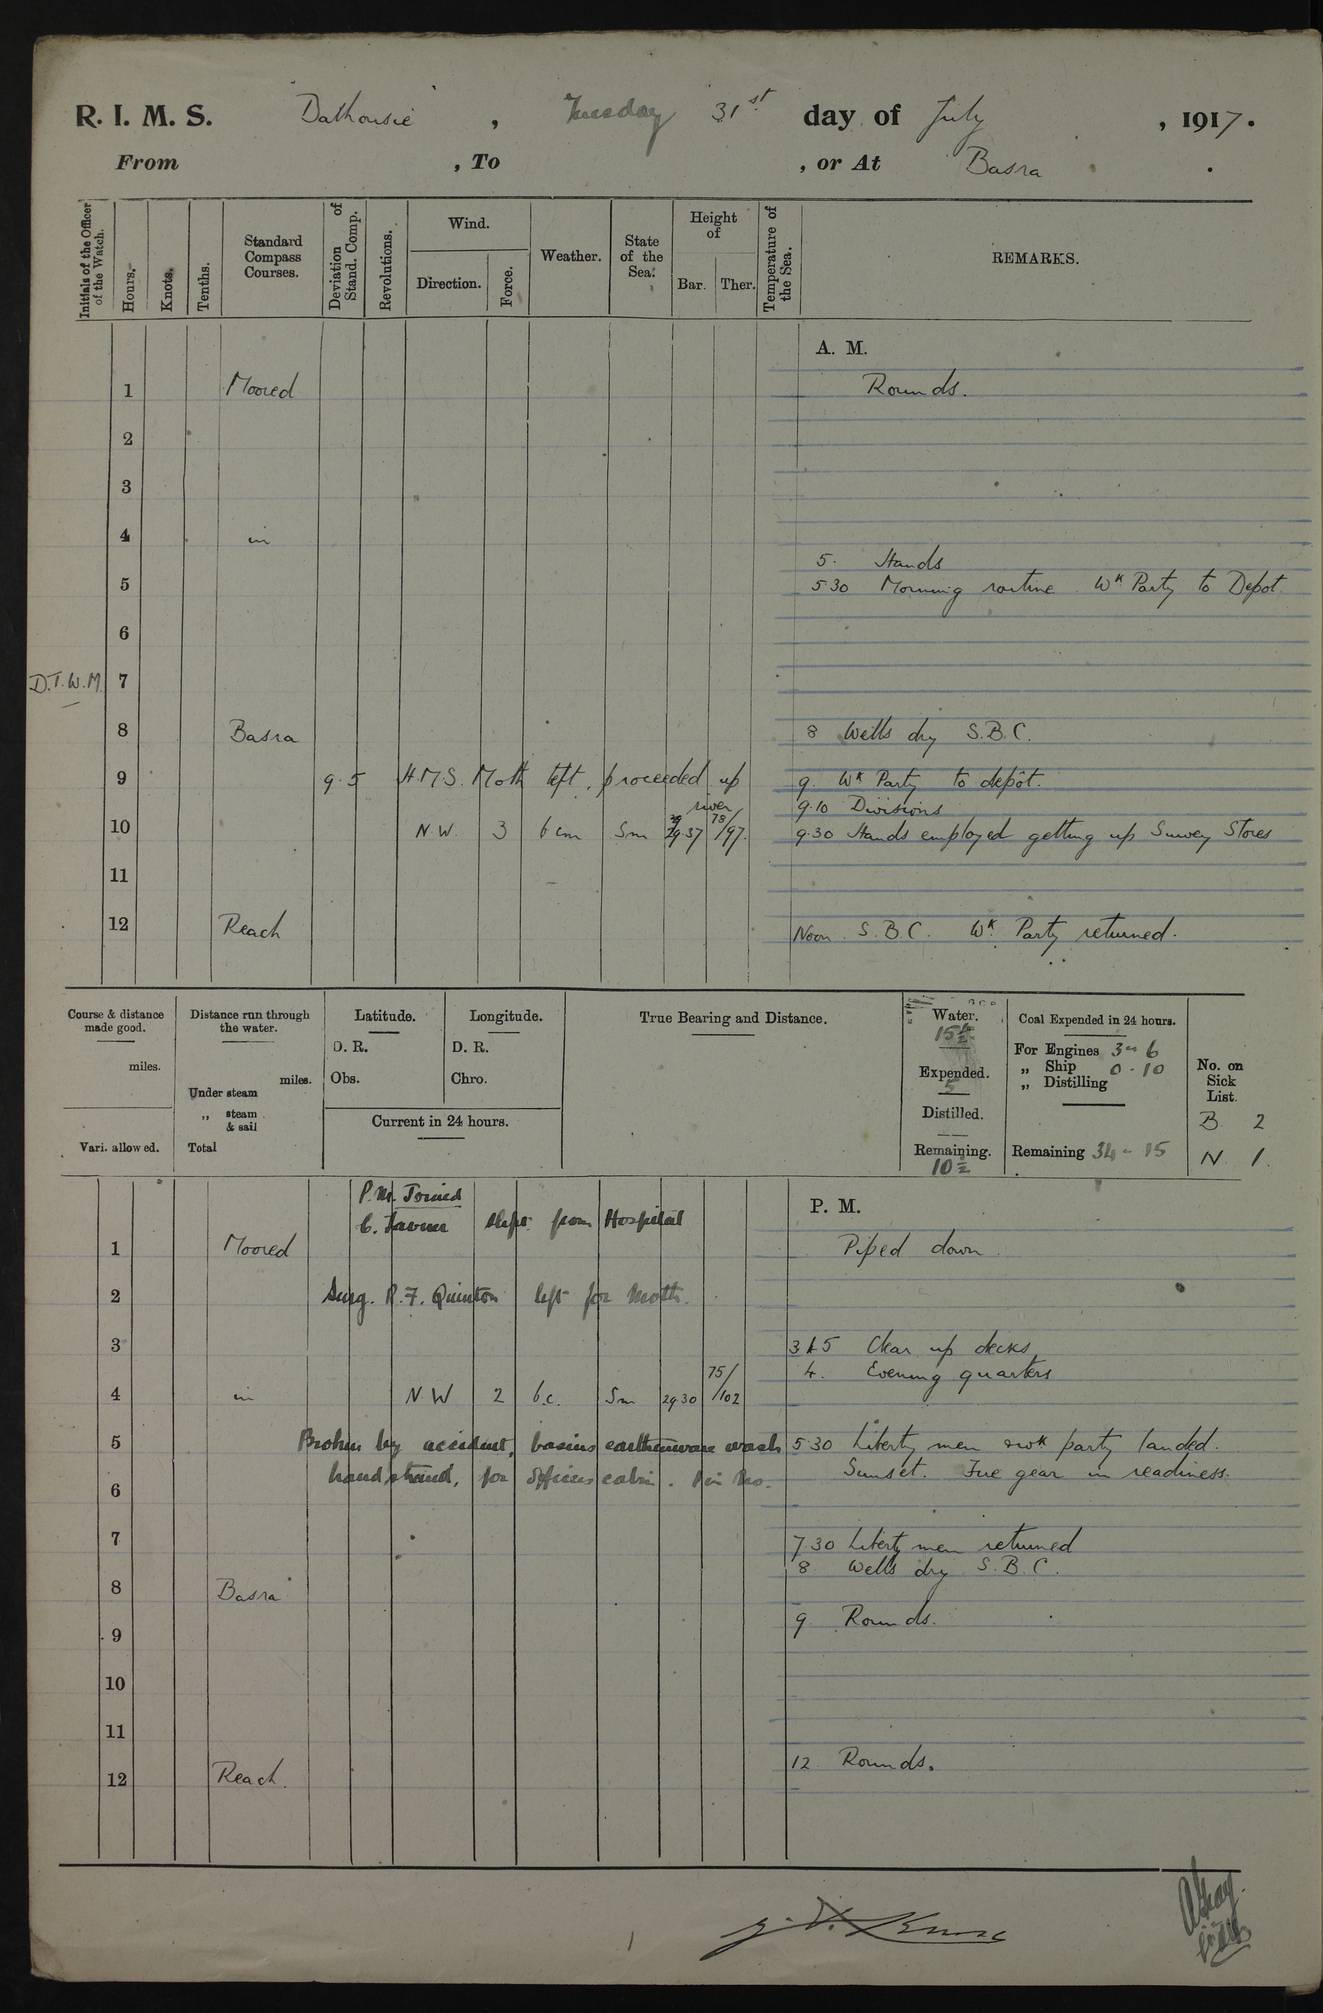 R. I. M. S. "Dalhousie", Tuesday 31st day of July, 1917.
From , To , or At Basra .
Initials of the Officer of the Watch.
Hours.
Knots.
Tenths.
Standard Compass Courses.
Deviation of Stand. Comp.
Revolutions.
Wind.
Direction.
Force.
Weather.
State of the Sea.
Height of
Bar.
Ther.
Temperature of the Sea.
REMARKS.
A. M.
1 Moored Rounds.
2
3
4 in
5. Hands
5 5 30 Morning routine Wk Party to Depot.
6
D.T.W.M. 7
8 Basra 8 Wells dry S.B.C.
9 9.5 H.M.S. Moth left, proceeded up river 9. Wk Party to depôt.
9.10 Divisions
10 N.W. 3 bcm Sm 29 37 78/97. 9.30 Hands employed getting up Survey Stores
11
12 Reach Noon. S.B.C. Wk. Party returned.
Course & distance made good.
miles.
Vari. allowed.
Distance run through the water.
miles.
Under steam
„ steam & sail
Total
Latitude.
D. R.
Obs.
Longitude.
D. R.
Chro.
Current in 24 hours.
True Bearing and Distance.
Water.
15
Expended.
5
Distilled.
Remaining.
10
Coal Expended in 24 hours.
For Engines 3 - 6
„ Ship 0 - 10
„ Distilling
Remaining 34 - 15
No. on Sick List.
B 2
N 1.
P.M. Joined
P. M.
from Hospital
1 Moored Piped down
2 Surg. R.F. Quinton left for Moth.
3 3 45 Clear up decks
4. Evening quarters
4 in N W 2 b.c. Sm 29 30 75/102
5 Broken by accident, basins earthenware wash 5.30 Liberty men & wk party landed.
hand stand, for officers cabin. Sunset. Fire gear in readiness.
6
7 7.30 Liberty men returned
8 Wells dry S.B.C.
8 Basra
9 9 Rounds.
10
11
12 Reach. 12 Rounds.